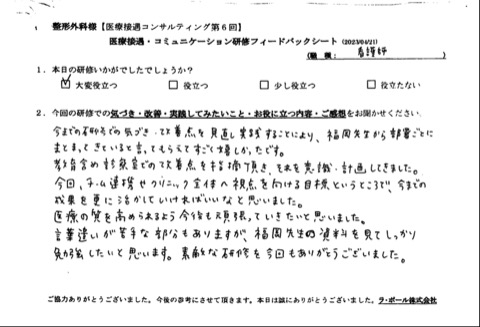 整形外科様【医療接遇コンサルティング第6回】
医療接遇・コミュニケーション研修フィードバックシート (2023/04/21)
(職種: 看護師 )
1. 本日の研修いかがでしたでしょうか?
☑ 大変役立つ □ 役立つ □ 少し役立つ □ 役立たない
2. 今回の研修での気づき・改善・実践してみたいこと・お役に立つ内容・ご感想をお聞かせください。
今までの研修での気づき・改善点を見直し実践することにより、福岡先生から部署ごとに
まとまってきていると言ってもらえてすごく嬉しかったです。
教育含め診察室での改善点を指摘頂き、それを意識・計画してきました。
今回、チーム連携やクリニック全体へ視点を向ける目標というところで、今までの
成果を更に活かしていければいいなと思いました。
医療の質を高められるよう今後も頑張っていきたいと思いました。
言葉遣いが苦手な部分もありますが、福岡先生の資料を見てしっかり
勉強したいと思います。素敵な研修を今回もありがとうございました。
ご協力ありがとうございました。今後の参考にさせて頂きます。本日は誠にありがとうございました。ラ・ポール株式会社